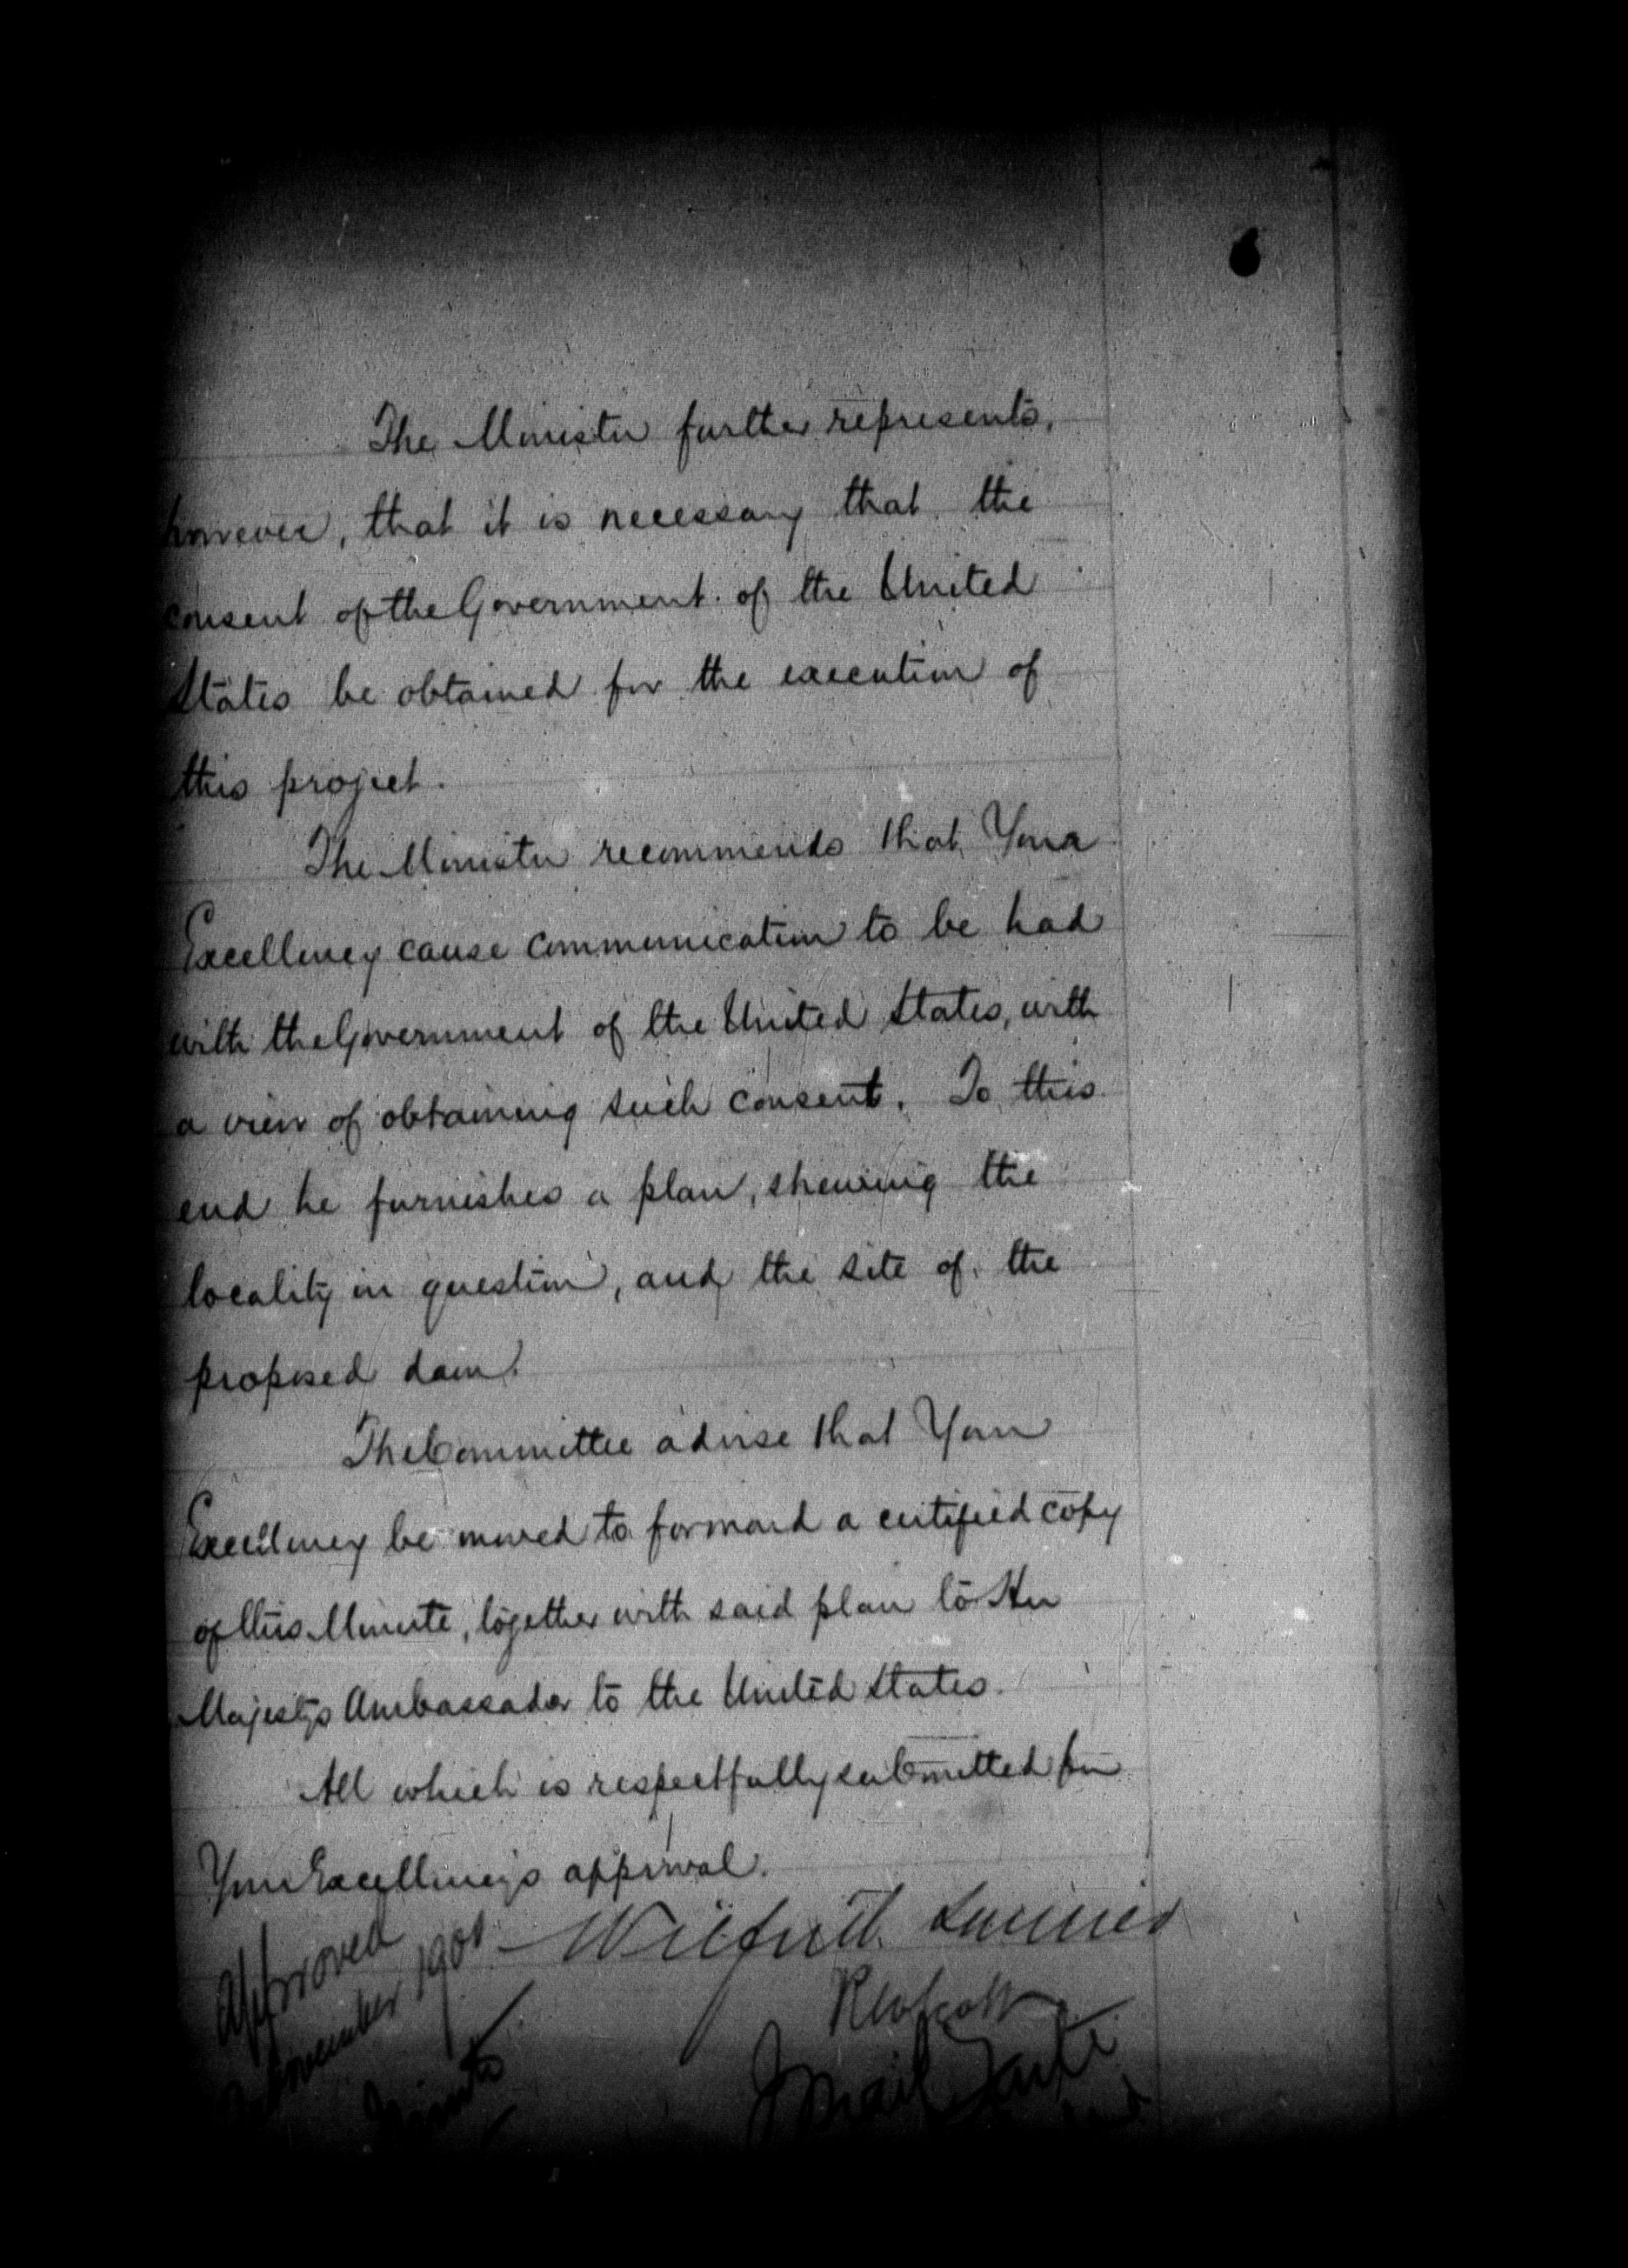 The Minister further represents,
however, that it is necessary that the
consent of the Government of the United
States be obtained for the execution of
this project.
The Minister recommends that Your
Excellency cause communication to be had
with the Government of the United States, with
a view of obtaining such consent. To this
end he furnishes a plan, shewing the
locality in question, and the site of the
proposed dam.
The Committee advise that Your
Excellency be moved to forward a certified copy
of this Minute, together with said plan to Her
Majesty's Ambassador to the United States.
All which is respectfully submitted for
Your Excellency's approval.
Wilfrid Laurier
Approved
November 1900
RWScott
Minto
J Israel Tarte